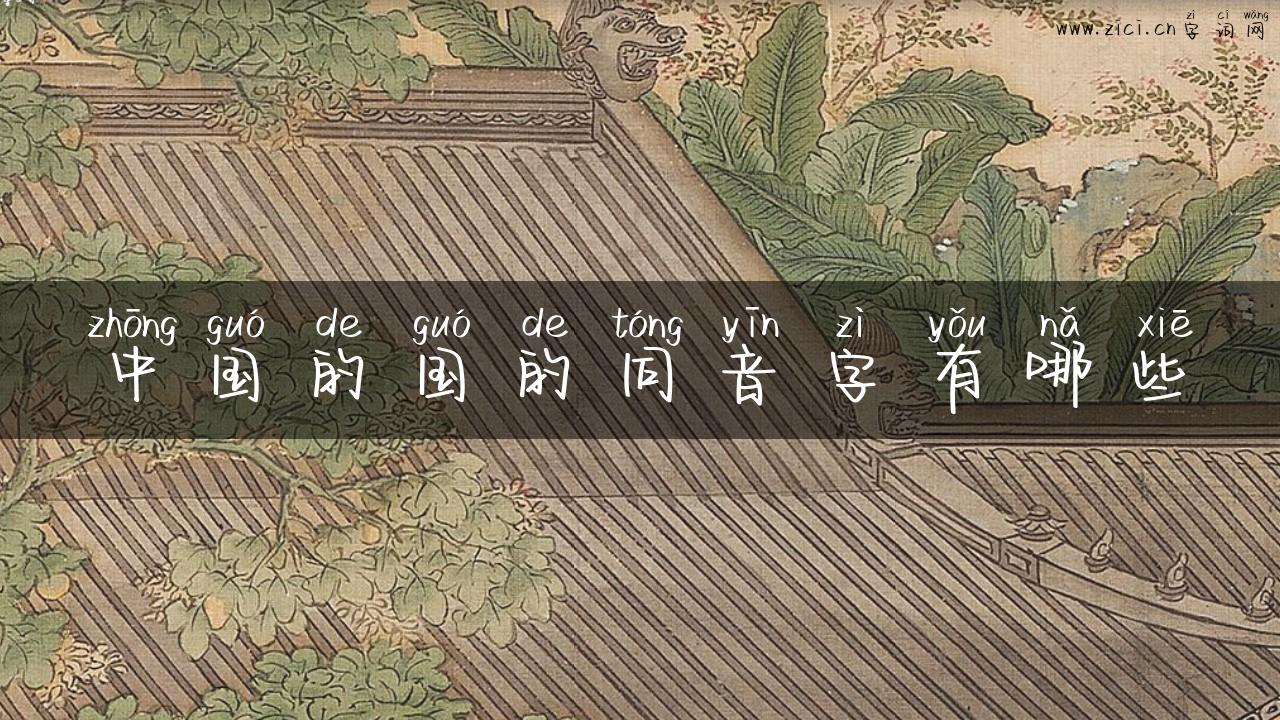 zì cí wǎng
www.zici.cn 字 词 网
zhōng guó de guó de tóng yīn zì yǒu nǎ xiē
中 国 的 国 的 同 音 字 有 哪 些